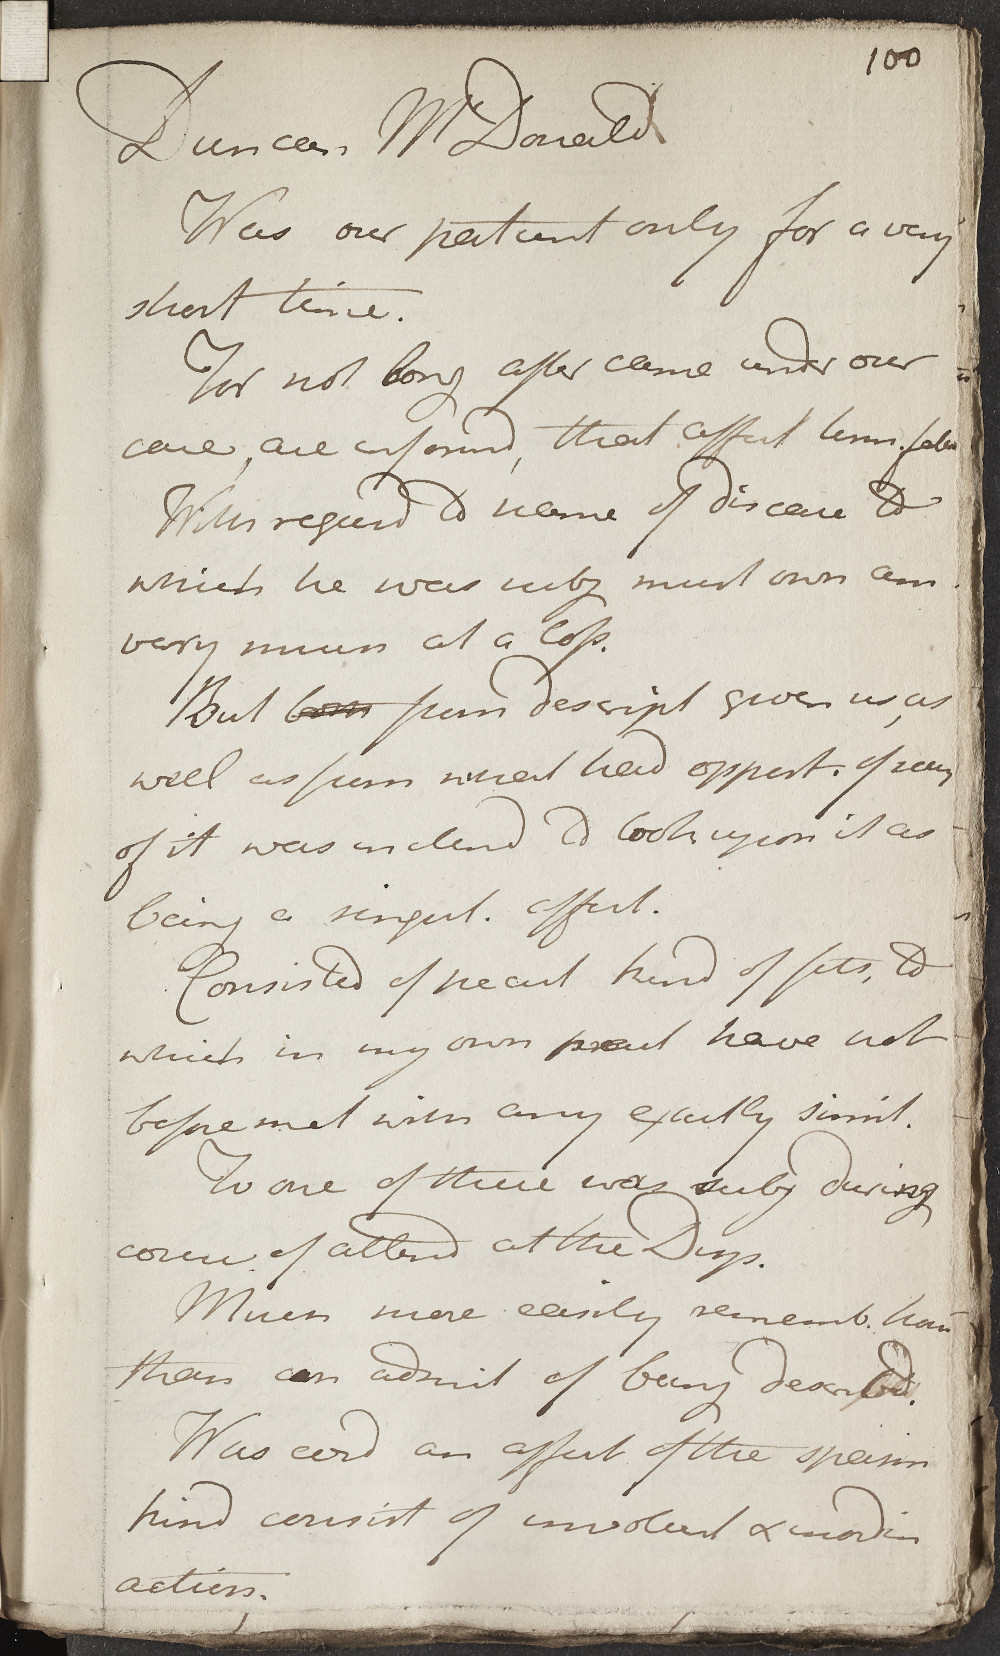 100
Duncan McDonald
Was our patient only for a very
short time.
For not long after came under our
care, are informd, that affect term. fatal
With regard to name of disease to
which he was subj must own am
very much at a loss.
But from descript given us, as
well as from what had opport. of seeing
of it was inclend to look upon it as
being a singul. affect.
Consisted of pecul kind of fits, to
which in my own pract have not
before met with any exactly simil.
To one of these was subj during
course of attend at the Disp.
Much more easily rememb. how
than can admit of being describd.
Was cerd an affect of the spasm
kind consist of involunt & inordin
action.